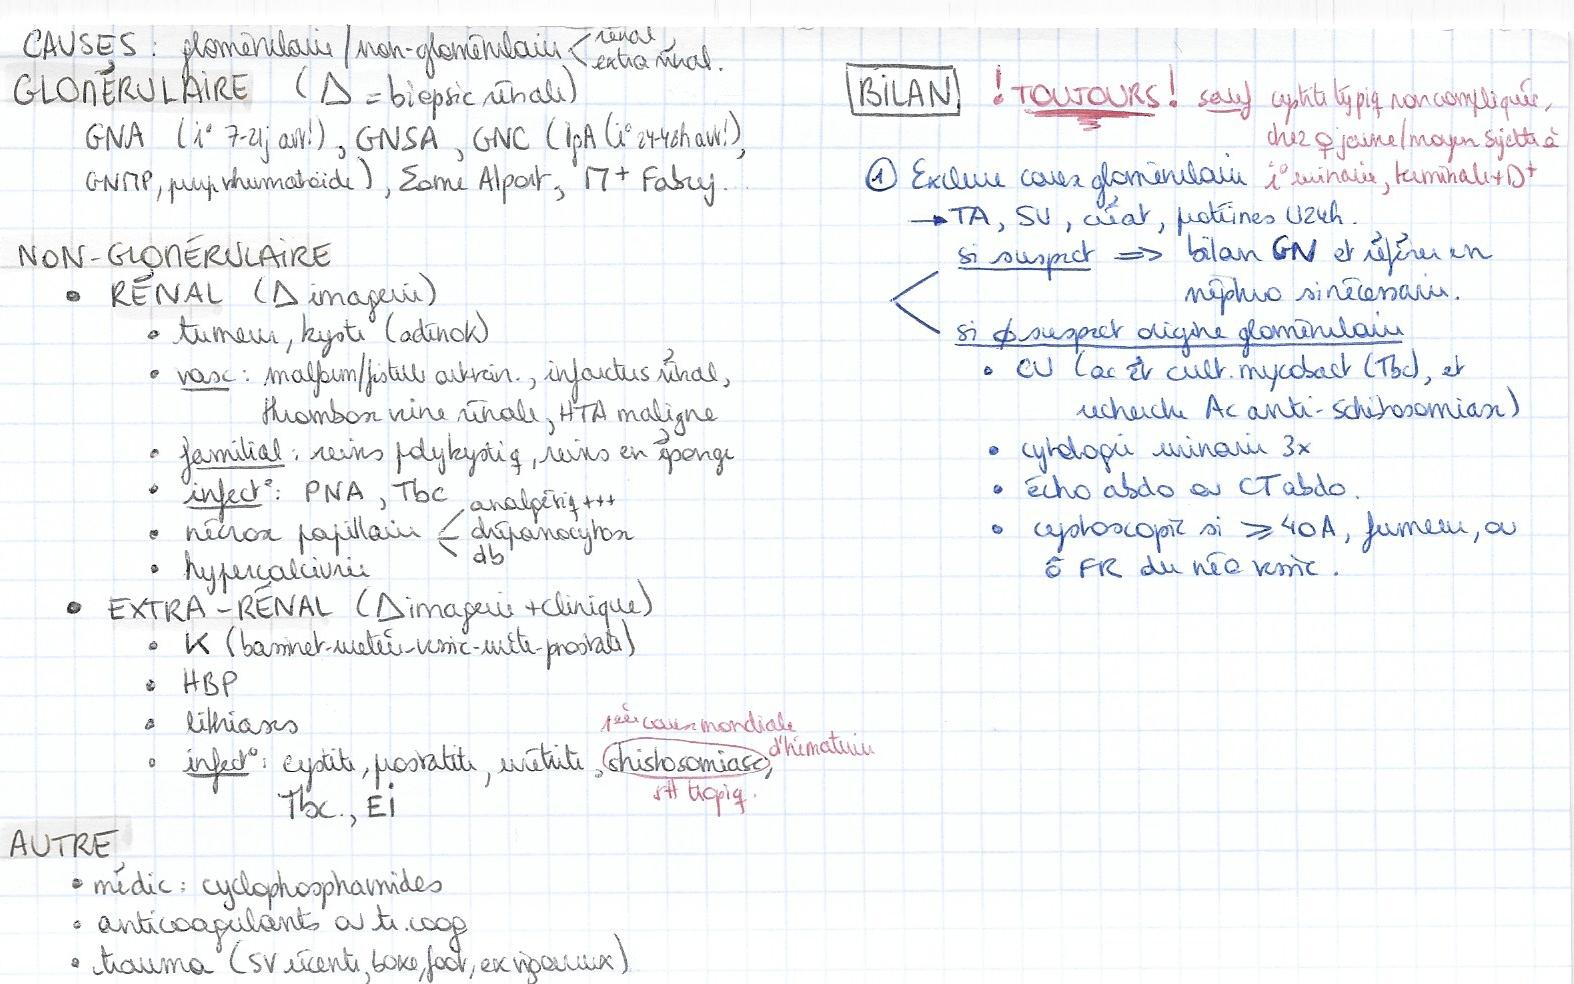 CAUSES : glomérulaire / non-glomérulaire < rénal, extra rénal.
GLOMÉRULAIRE (Δ = biopsie rénale)
GNA (i° 7-21j avt!), GNSA, GNC (IgA (i° 24-48h avt!),
GNMP, purp rhumatoïde), Σome Alport, M+ Fabry.
NON-GLOMÉRULAIRE
• RÉNAL (Δ imagerie)
• tumeur, kyste (adénok)
• vasc : malform/fistule artériov., infarctus rénal,
thrombose veine rénale, HTA maligne
• familial : reins polykystiq, reins en éponge
• infect° : PNA, Tbc
• nécrose papillaire < analgésiq +++
drépanocytose
db
• hypercalciurie
• EXTRA-RÉNAL (Δ imagerie + clinique)
• K (bassinet-uretère-vessie-urètre-prostate)
• HBP
• lithiases
• infect° : cystite, prostatite, urétrite, shistosomiase,
1ère cause mondiale
d'hématurie
stt tropiq.
Tbc., EI
AUTRE
• médic : cyclophosphamides
• anticoagulants ou tr. coag
• trauma (SV récente, boxe, foot, ex vigoureux)
BILAN ! TOUJOURS ! sauf cystite typiq non compliquée,
chez ♀ jeune/moyen sujette à
i° urinaire, terminale + D+
① Exclure cause glomérulaire
→ TA, SU, créat, protéines U24h.
si suspect => bilan GN et référer en
néphro si nécessaire.
si ∅ suspect origine glomérulaire
• CU (ac et cult. mycobact (Tbc), et
recherche Ac anti-schistosomiase)
• cytologie urinaire 3x
• écho abdo ou CT abdo.
• cystoscopie si ≥ 40A, fumeur, ou
ō FR du néo vessie.